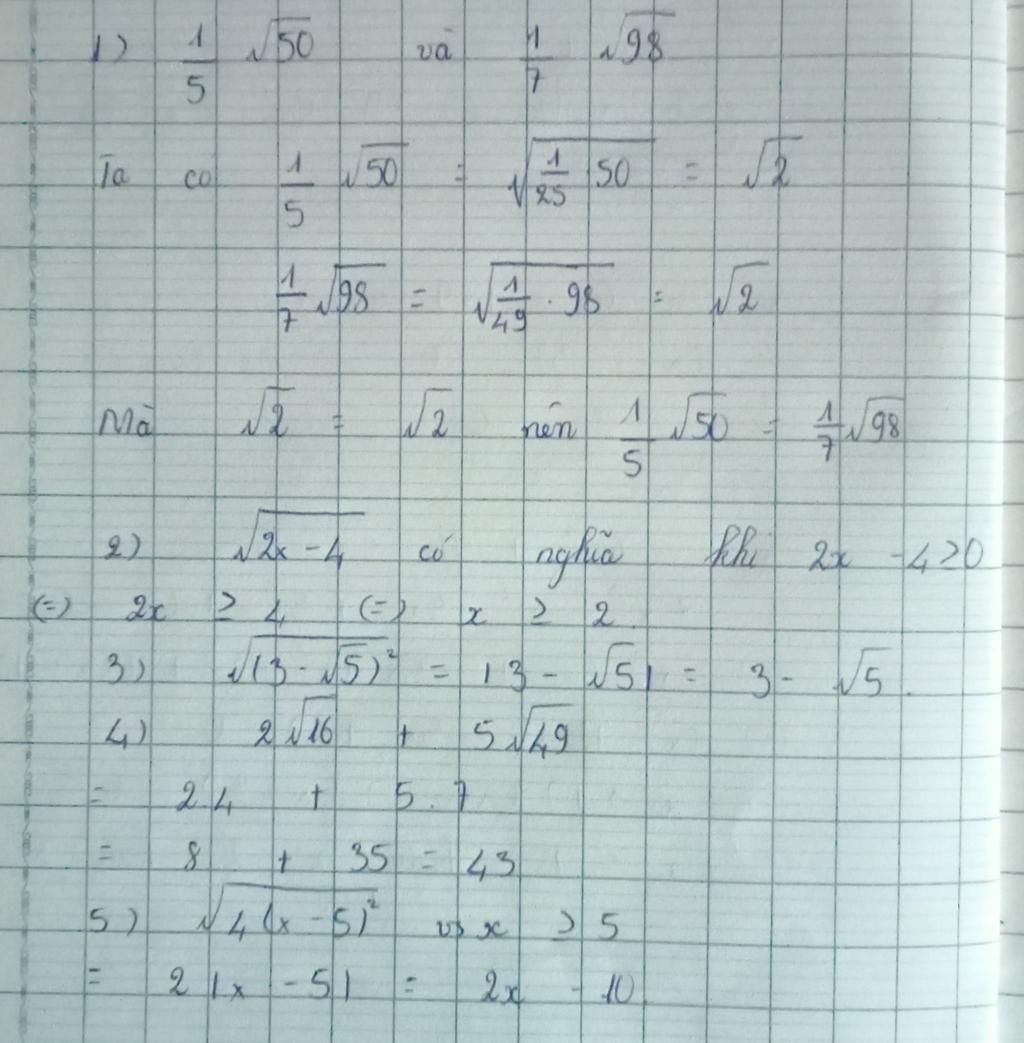 1) 1/5 √50 và 1/7 √98
Ta có 1/5 √50 = √(1/25 50) = √2
1/7 √98 = √(1/49 . 98) = √2
Mà √2 = √2 nên 1/5 √50 = 1/7 √98
2) √(2x - 4) có nghĩa khi 2x - 4 ≥ 0
(=) 2x ≥ 4 (=) x ≥ 2
3) √(3 - √5)² = |3 - √5| = 3 - √5.
4) 2√16 + 5√49
= 2 4 + 5 . 7
= 8 + 35 = 43
5) √(4(x - 5)²) x ≥ 5
= 2 |x - 5| = 2x - 10